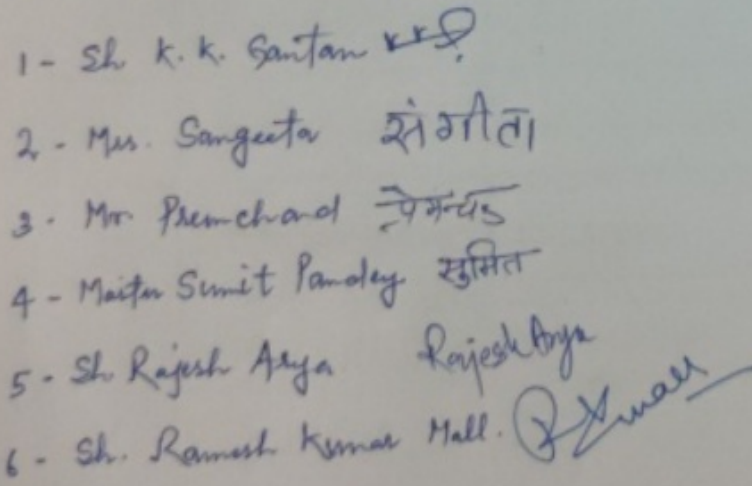 1 - Sh K. K. Santan
2 - Mrs. Sangeeta संगीता
3 - Mr. Premchand प्रेमचन्द
4 - Master Sumit Pandey सुमित
5 - Sh Rajesh Arya Rajesh Arya
6 - Sh. Ramesh Kumar Mall.